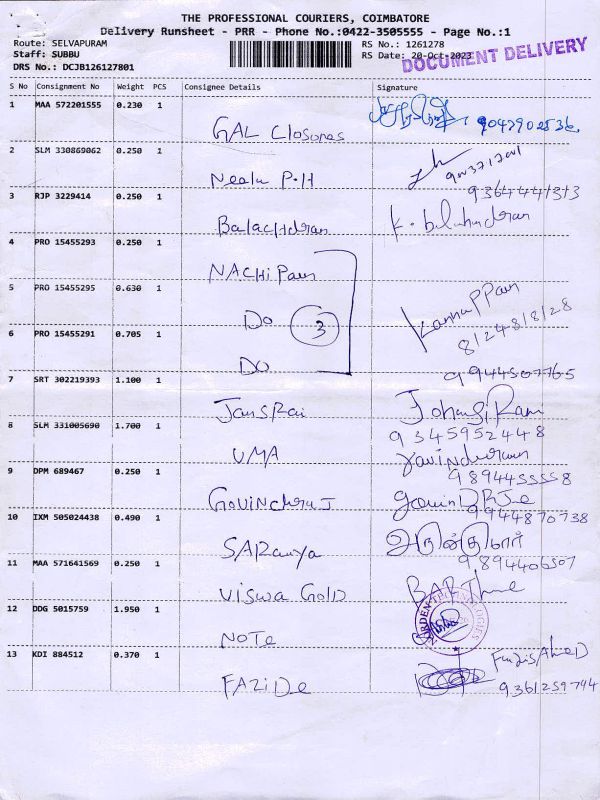 THE PROFESSIONAL COURIERS, COIMBATORE
Delivery Runsheet - PRR - Phone No.:0422-3505555 - Page No.:1
Route: SELVAPURAM
Staff: SUBBU
DRS No.: DCJB126127801
RS No.: 1261278
RS Date: 20-Oct-2023
DOCUMENT DELIVERY
S No Consignment No Weight PCS Consignee Details Signature
1 MAA 572201555 0.230 1
GAL Closures 9047902536
2 SLM 330869062 0.250 1
Neelu P.H
3 RJP 3229414 0.250 1 9364441313
Balachdran K. balachandran
4 PRO 15455293 0.250 1
NACHiPan
5 PRO 15455295 0.630 1
Do 3 KannapPan
8124818128
6 PRO 15455291 0.705 1
Do 9944507765
7 SRT 302219393 1.100 1
JansRai
9345952448
8 SLM 331005690 1.700 1
UMA
9894455558
9 DPM 689467 0.250 1
GOVINdhraJ
9944870738
10 IXM 505024438 0.490 1
SARanya அருண்குமார்
9894406507
11 MAA 571641569 0.250 1
Viswa GolD
12 DDG 5015759 1.950 1
NOTe
13 KDI 884512 0.370 1
FAZiDe
9361259794